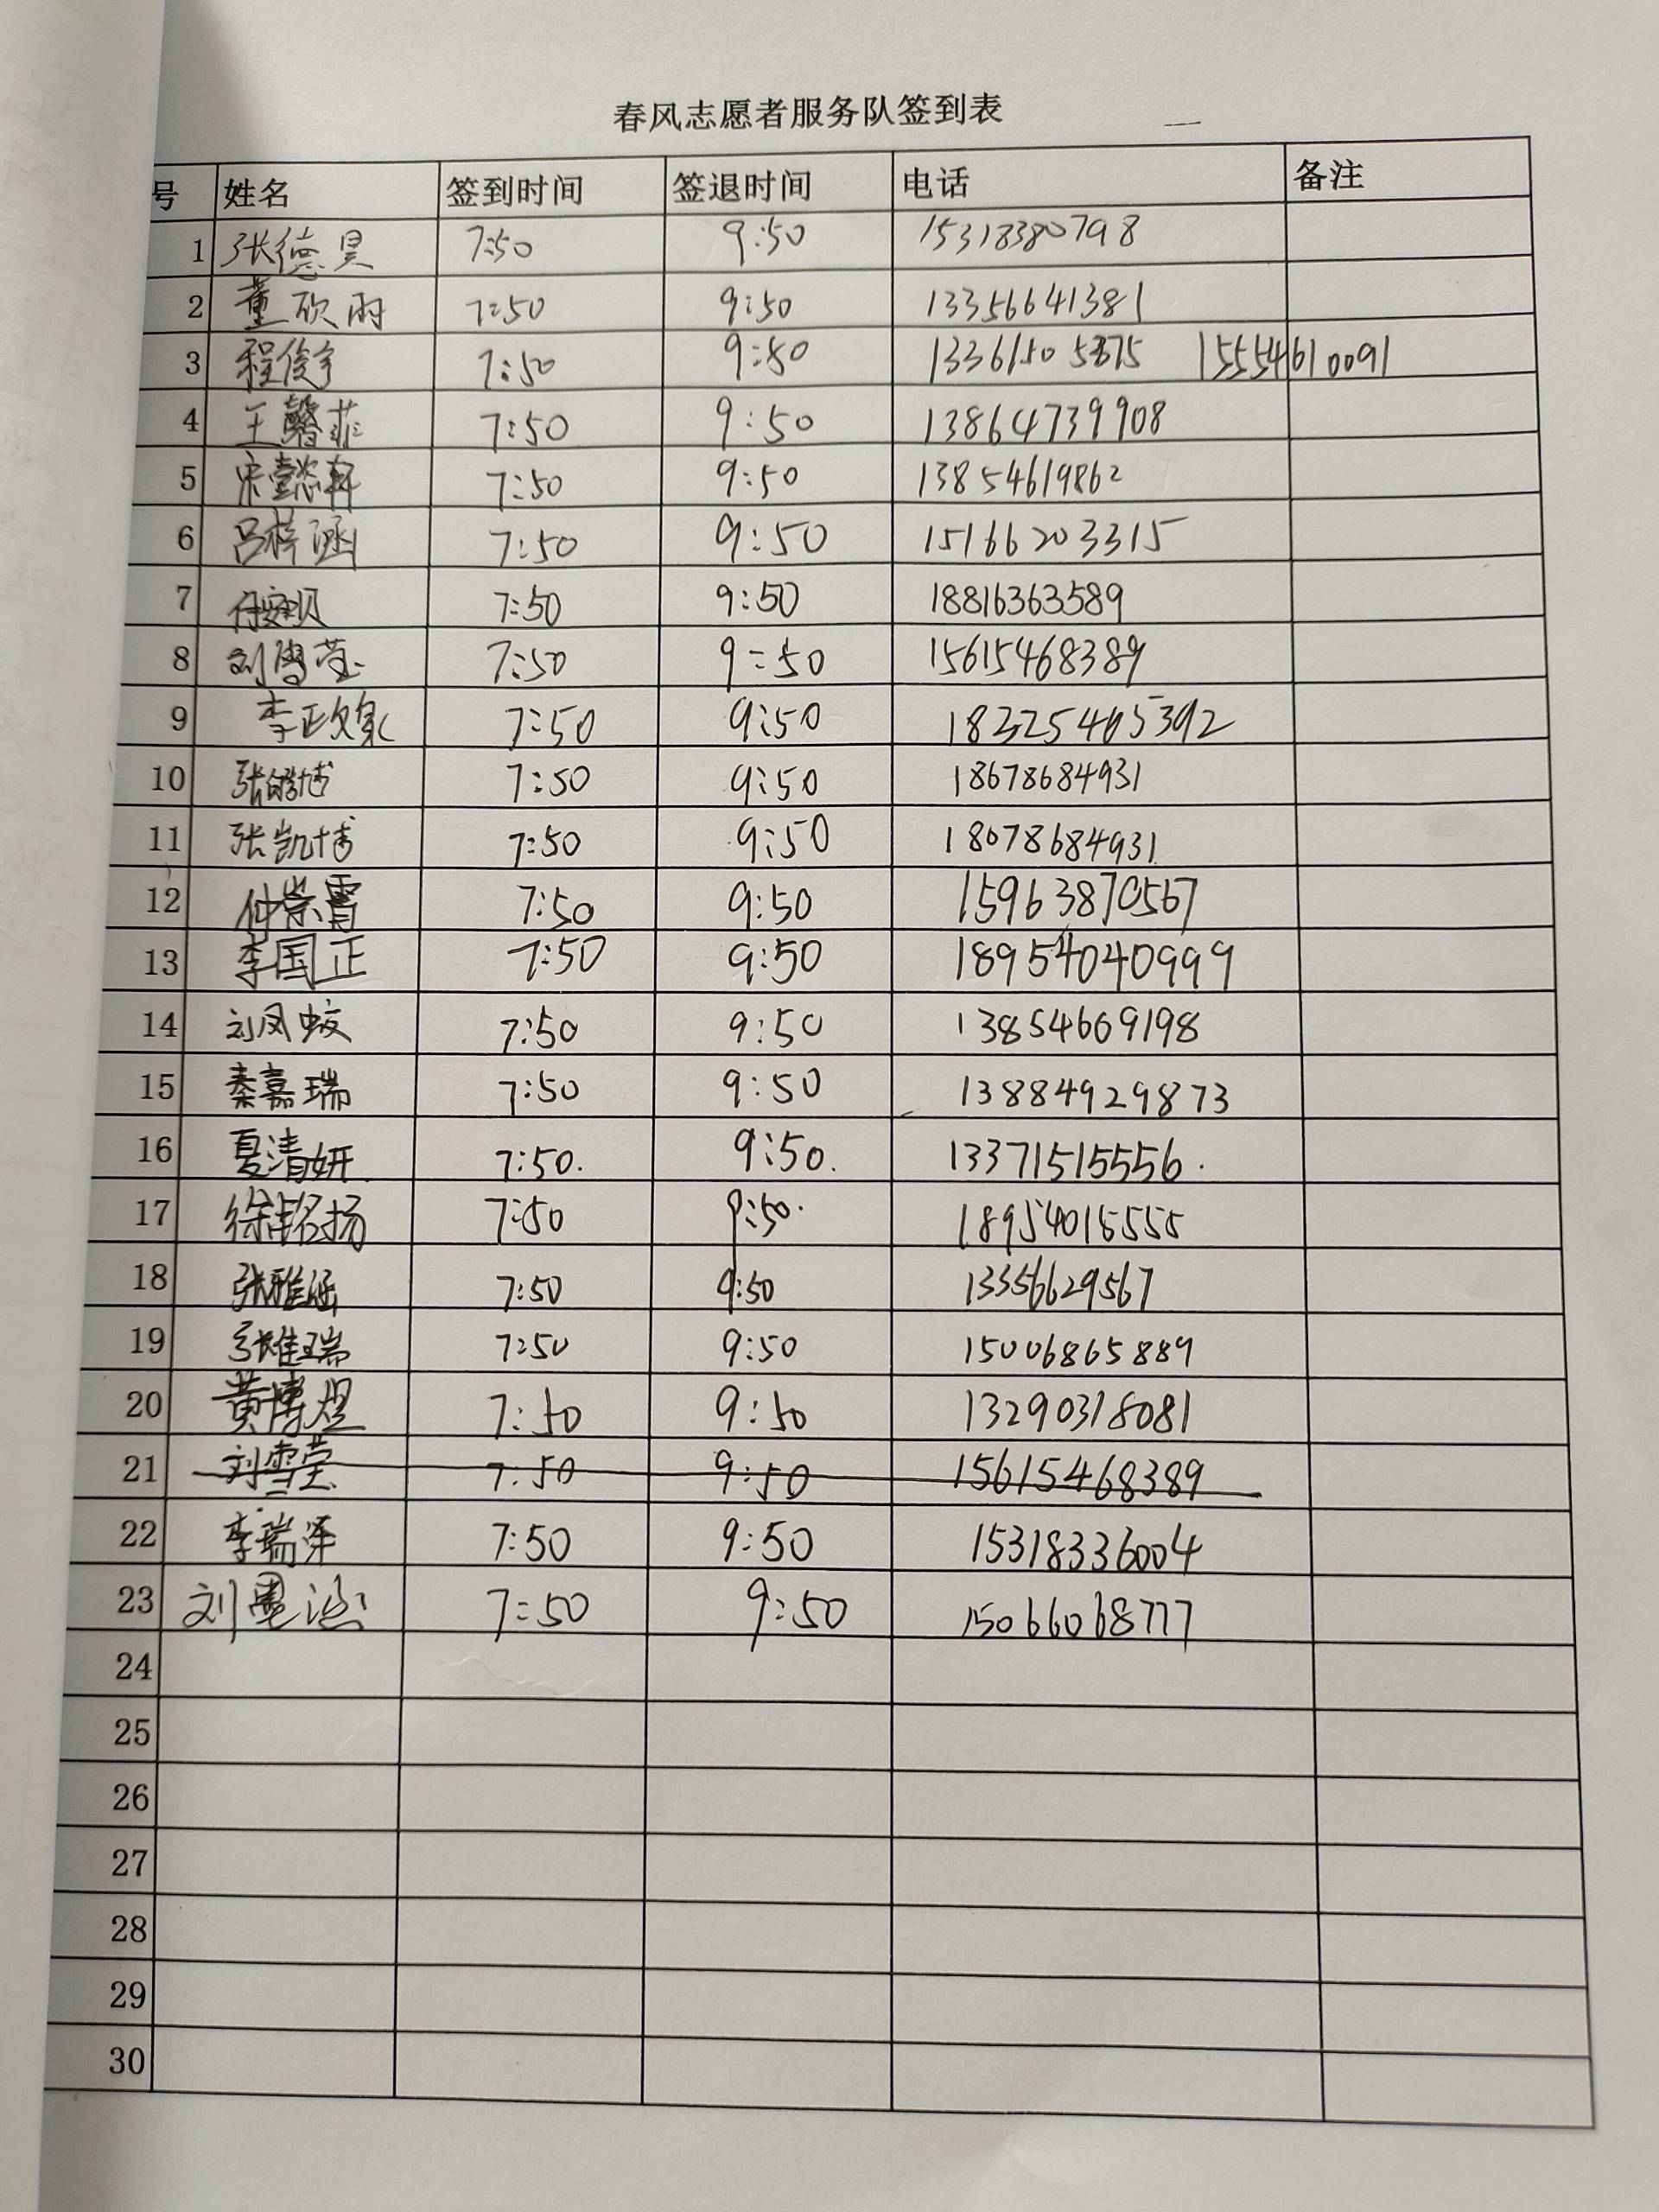 春风志愿者服务队签到表
号 姓名 签到时间 签退时间 电话 备注
1 张德昊 7:50 9:50 15318380798
2 董欣雨 7:50 9:50 13356641381
3 程俊宇 7:50 9:50 15554610091
4 王馨菲 7:50 9:50 13864739908
5 宋懿轩 7:50 9:50 13854619862
6 吕梓涵 7:50 9:50 15166203315
7 7:50 9:50 18816363589
8 刘雪莹 7:50 9:50 15615468389
9 7:50 9:50
10 张皓博 7:50 9:50 18678684931
11 张凯博 7:50 9:50 18678684931
12 仲崇霄 7:50 9:50 15963870567
13 李国正 7:50 9:50 18954040999
14 刘凤蛟 7:50 9:50 13854669198
15 秦嘉瑞 7:50 9:50 13884929873
16 夏清妍 7:50. 9:50. 13371515556.
17 徐铭扬 7:50 9:50. 18954015555
18 张雅涵 7:50 9:50 13356629567
19 张维瑞 7:50 9:50 15006865889
20 黄博煜 7:50 9:50 13290318081
21 刘雪莹 7:50 9:50 15615468389
22 李瑞泽 7:50 9:50 15318336004
23 7:50 9:50 15066068777
24
25
26
27
28
29
30